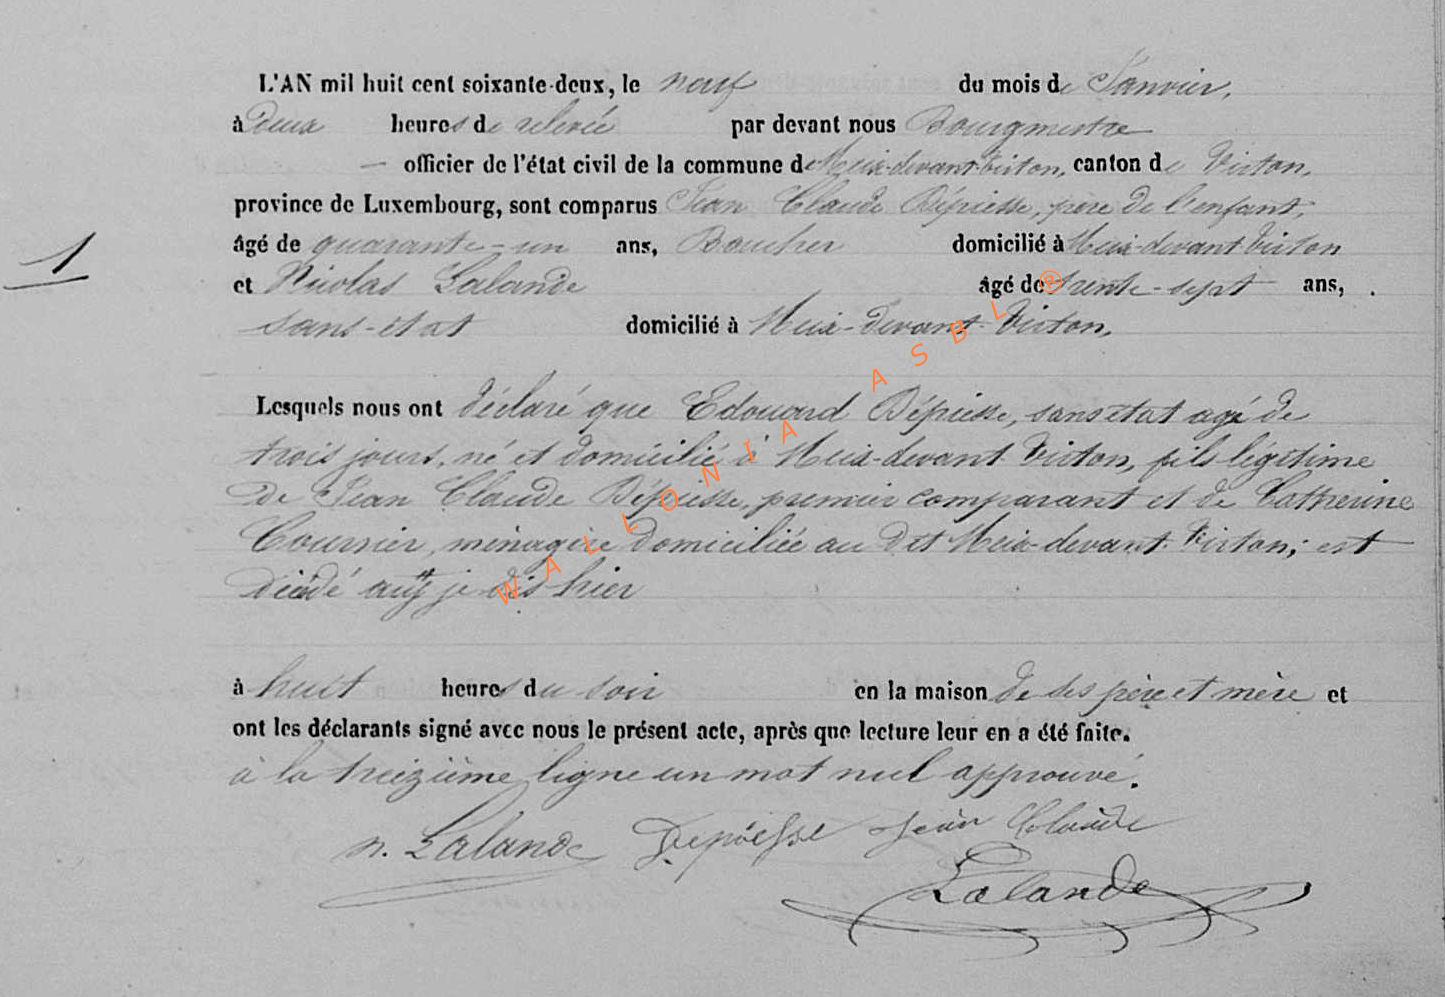 L'AN mil huit cent soixante-deux, le neuf du mois de Janvier,
à Deux heures de relevée par devant nous Bourgmestre
— officier de l'état civil de la commune de Meix-devant-Virton, canton de Virton,
province de Luxembourg, sont comparus Jean Claude Dépiesse, père de l'enfant,
âgé de quarante-un ans, Boucher domicilié à Meix-devant Virton
1
et Nicolas Lalande âgé de trente-sept ans,
sans-état domicilié à Meix-devant-Virton,
Lesquels nous ont déclaré que Edouard Dépiesse, sans état agé de
trois jours, né et domicilié à Meix-devant Virton, fils légitime
de Jean Claude Dépiesse, premier comparant et de Catherine
Courrier, ménagère domiciliée au dit Meix-devant-Virton; est
décédé je dis hier
à huit heures du soir en la maison de ses père et mère et
ont les déclarants signé avec nous le présent acte, après que lecture leur en a été faite.
à la treizième ligne un mot nul approuvé.
n. Lalande Depiesse Jean Claude
Lalande
WALLONIA ASBL ®